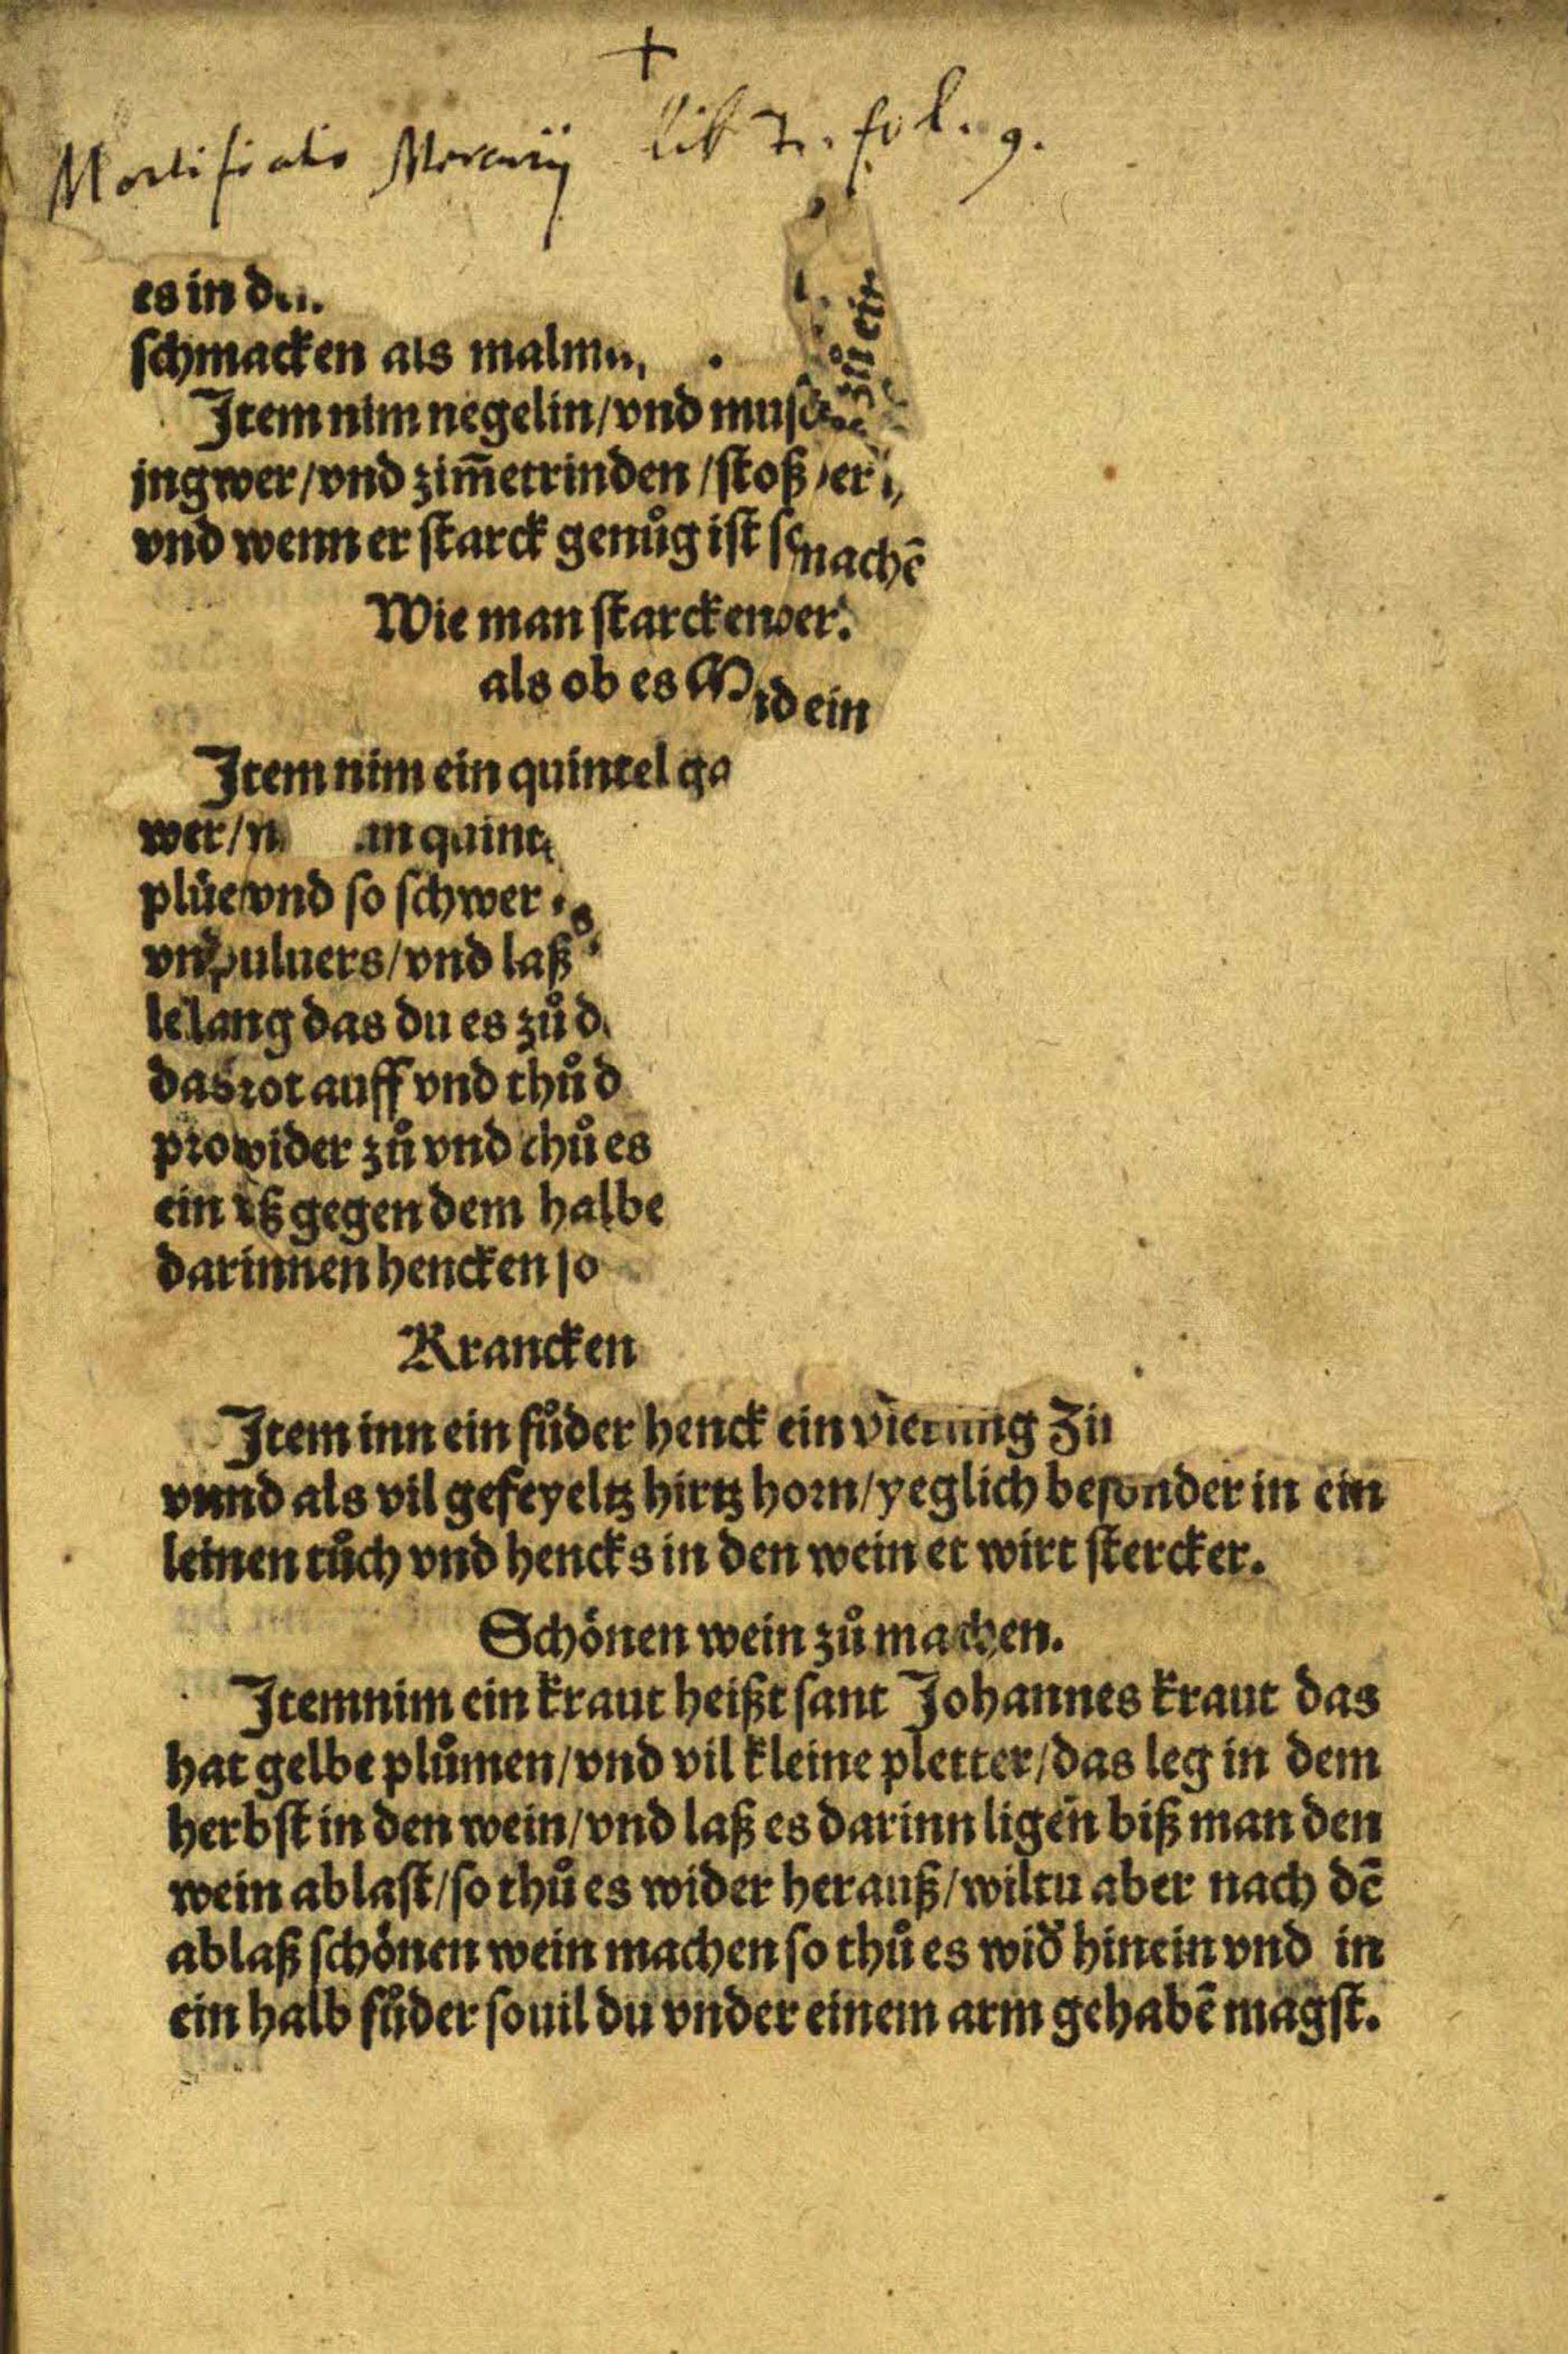 +
Mortificatio Mercurij lib 7. fol. 9.
es in
schmacken als
Item nim negelin/vnd
jngwer/vnd zim̄etrinden/stoß
vnd wenn er starck genůg ist
machē
Wie man starcken
als ob es
ein
Item nim ein quintel
wer/
plüe vnd so schwer
puluers/vnd laß
lang das du es zů
auff vnd thů
wider zů vnd thů es
ein gegen dem halbe
darinnen hencken so
Krancken
Item inn ein fůder henck ein vierung
vnnd als vil gefeyeltz hirtz horn/yeglich besonder in ein
leinen tůch vnd hencks in den wein er wirt stercker.
Schönen wein zů machen.
Item nim ein kraut heißt sant Johannes kraut das
hat gelbe plůmen/vnd vil kleine pletter/das leg in dem
herbst in den wein/vnd laß es darinn ligen biß man den
wein ablast/so thů es wider herauß/wiltu aber nach dē
ablaß schönen wein machen so thů es wid̓ hinein vnd in
ein halb fůder souil du vnder einem arm gehabē magst.